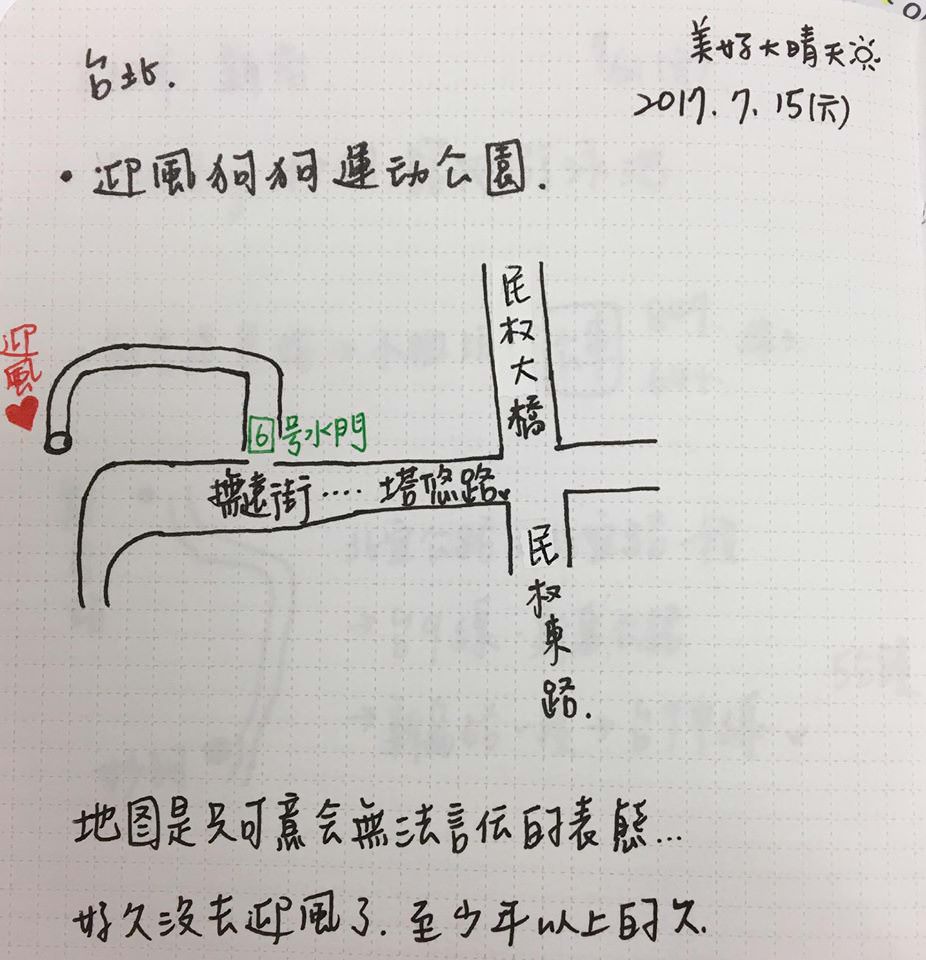 台北.
美好大晴天
2017. 7. 15(六)
• 迎風狗狗運动公園.
民权大橋
迎風
6号水門
撫遠街.... 塔悠路
民权東路.
地图是只可意会無法言伝的表態...
好久沒去迎風了. 至少年以上的久.